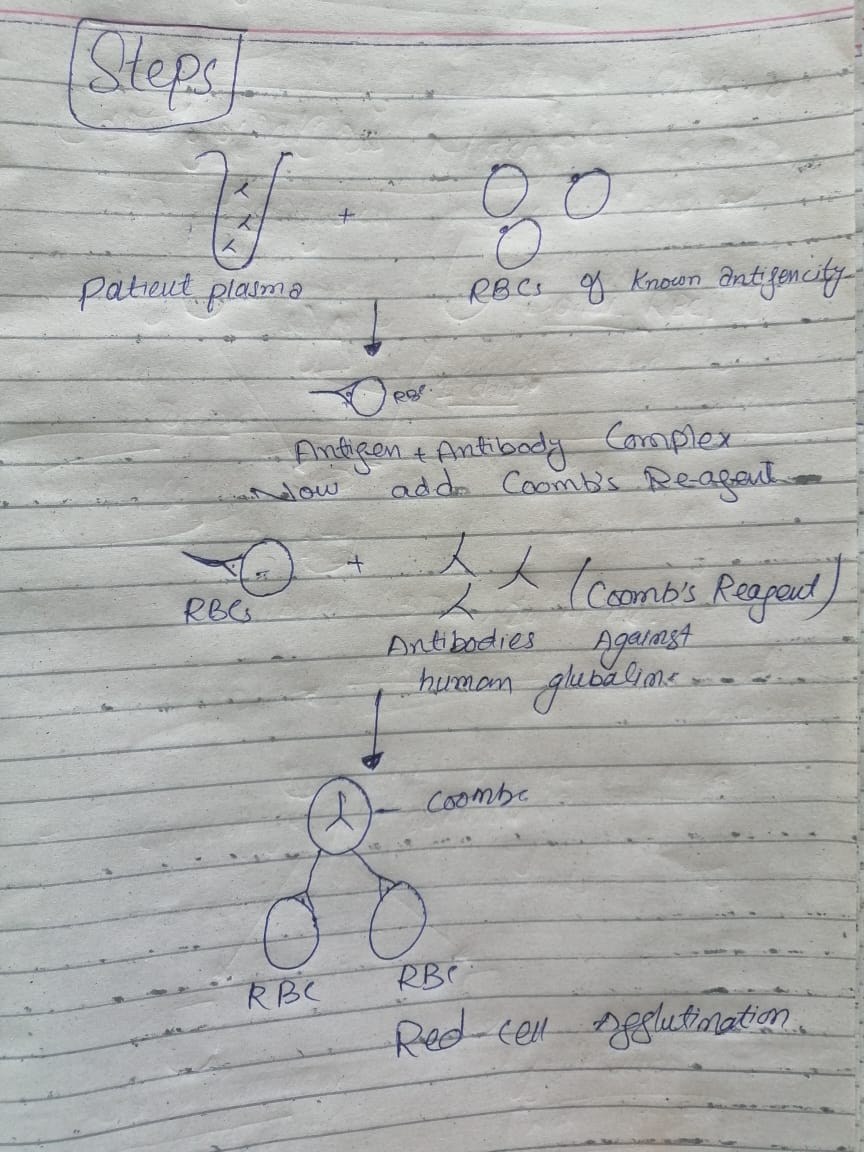 Steps
+
Patient plasma
RBCs of Known antigencity
RBC
Antigen + Antibody Complex
Now add Coomb's Reagent
+
(Coomb's Reagent)
RBCs
Antibodies Against
human glubalins
Coombs
RBC
RBC
Red cell Agglutination